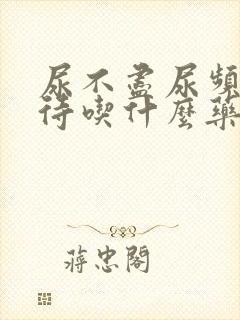 尿不盡尿頻
待喫什麼藥
蔣忠閣